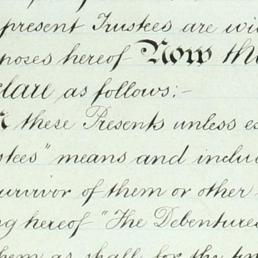 present Trustees are wi
poses hereof Now th
clare as follows:-
these Presents unless ex
stees" means and inclu
urvivor of them or other
ng hereof "The Debentures
them as shall for the tim